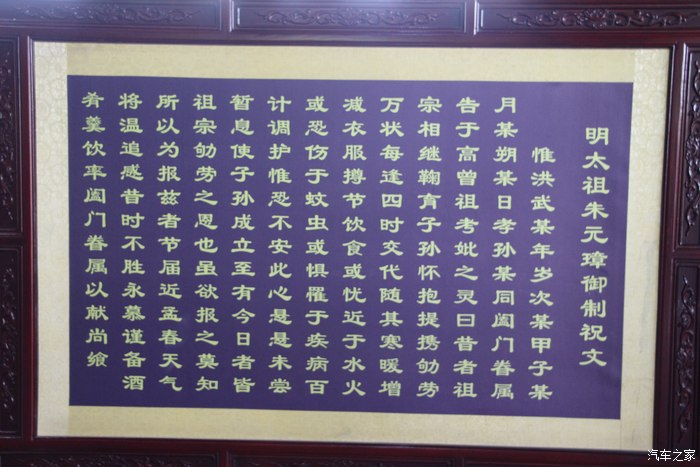 明太祖朱元璋御制祝文
惟洪武某年岁次某甲子某
月某朔某日孝孙某同阖门眷属
告于高曾祖考妣之灵曰昔者祖
宗相继鞠育子孙怀抱提携劬劳
万状每逢四时交代随其寒暖增
减衣服撙节饮食或忧近于水火
或恐伤于蚊虫或惧罹于疾病百
计调护惟恐不安此心悬悬未尝
暂息使子孙成立至有今日者皆
祖宗劬劳之恩也虽欲报之莫知
所以为报兹者节届近孟春天气
将温追感昔时不胜永慕谨备酒
肴羹饮率阖门眷属以献尚飨
汽车之家